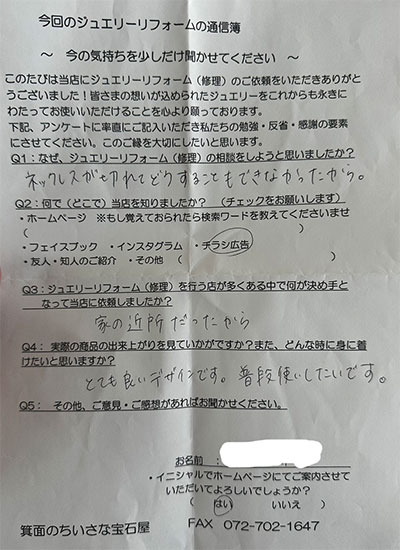 今回のジュエリーリフォームの通信簿
~ 今の気持ちを少しだけ聞かせてください ~
このたびは当店にジュエリーリフォーム(修理)のご依頼をいただきありがと
うございました!皆さまの想いが込められたジュエリーをこれからも永きに
わたってお使いいただけることを心より願っております。
下記、アンケートに率直にご記入いただき私たちの勉強・反省・感謝の要素
にさせてください。このご縁を大切にしたいと思います。
Q1:なぜ、ジュエリーリフォーム(修理)の相談をしようと思いましたか?
ネックレスが切れてどうすることもできなかったから。
Q2:何で(どこで)当店を知りましたか? (チェックをお願いします)
・ホームページ ※もし覚えておられたら検索ワードを教えてくださいませ
( )
・フェイスブック ・インスタグラム ・チラシ広告
・友人・知人のご紹介 ・その他( )
Q3:ジュエリーリフォーム(修理)を行う店が多くある中で何が決め手と
なって当店に依頼しましたか?
家の近所だったから
Q4: 実際の商品の出来上がりを見ていかがですか?また、どんな時に身に着
けたいと思いますか?
とても良いデザインです。普段使いしたいです。
Q5: その他、ご意見・ご感想があればお聞かせください。
お名前:
・イニシャルでホームページにてご案内させて
いただいてよろしいでしょうか?
( はい いいえ )
箕面のちいさな宝石屋 FAX 072-702-1647